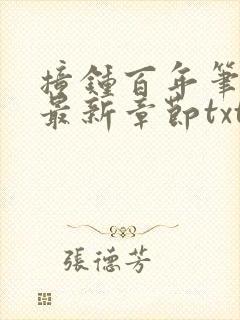 撞鐘百年筆
最新章節txt
張德芳